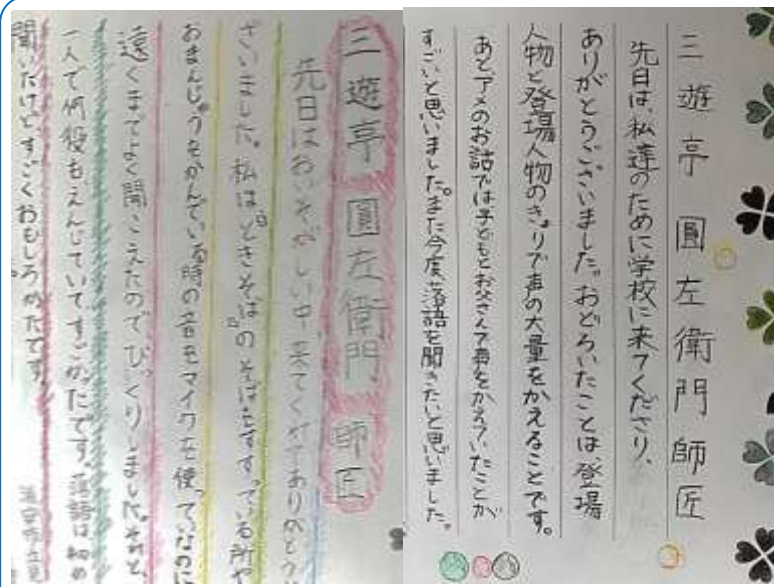 三遊亭 圓左衛門師匠
先日は、私達のために学校に来てくださり、
ありがとうございました。おどろいたことは、登場
人物と登場人物のきょりで声の大量をかえることです。
あとアメのお話では子どもとお父さんで声をかえていたことが
すごいと思いました。また今度落語を聞きたいと思いました。
三遊亭 圓左衛門 師匠
先日はおいそがしい中、来てくださりありがとう
ざいました。私は『ときそば』のそばをすすっている所や
おまんじゅうをかんでいる時の音もマイクを使っていなのに
遠くまでよく聞こえたのでびっくりしました。それと、
一人で何役もえんじていてすごかったです。落語は初め
聞いたけどすごくおもしろかたです。